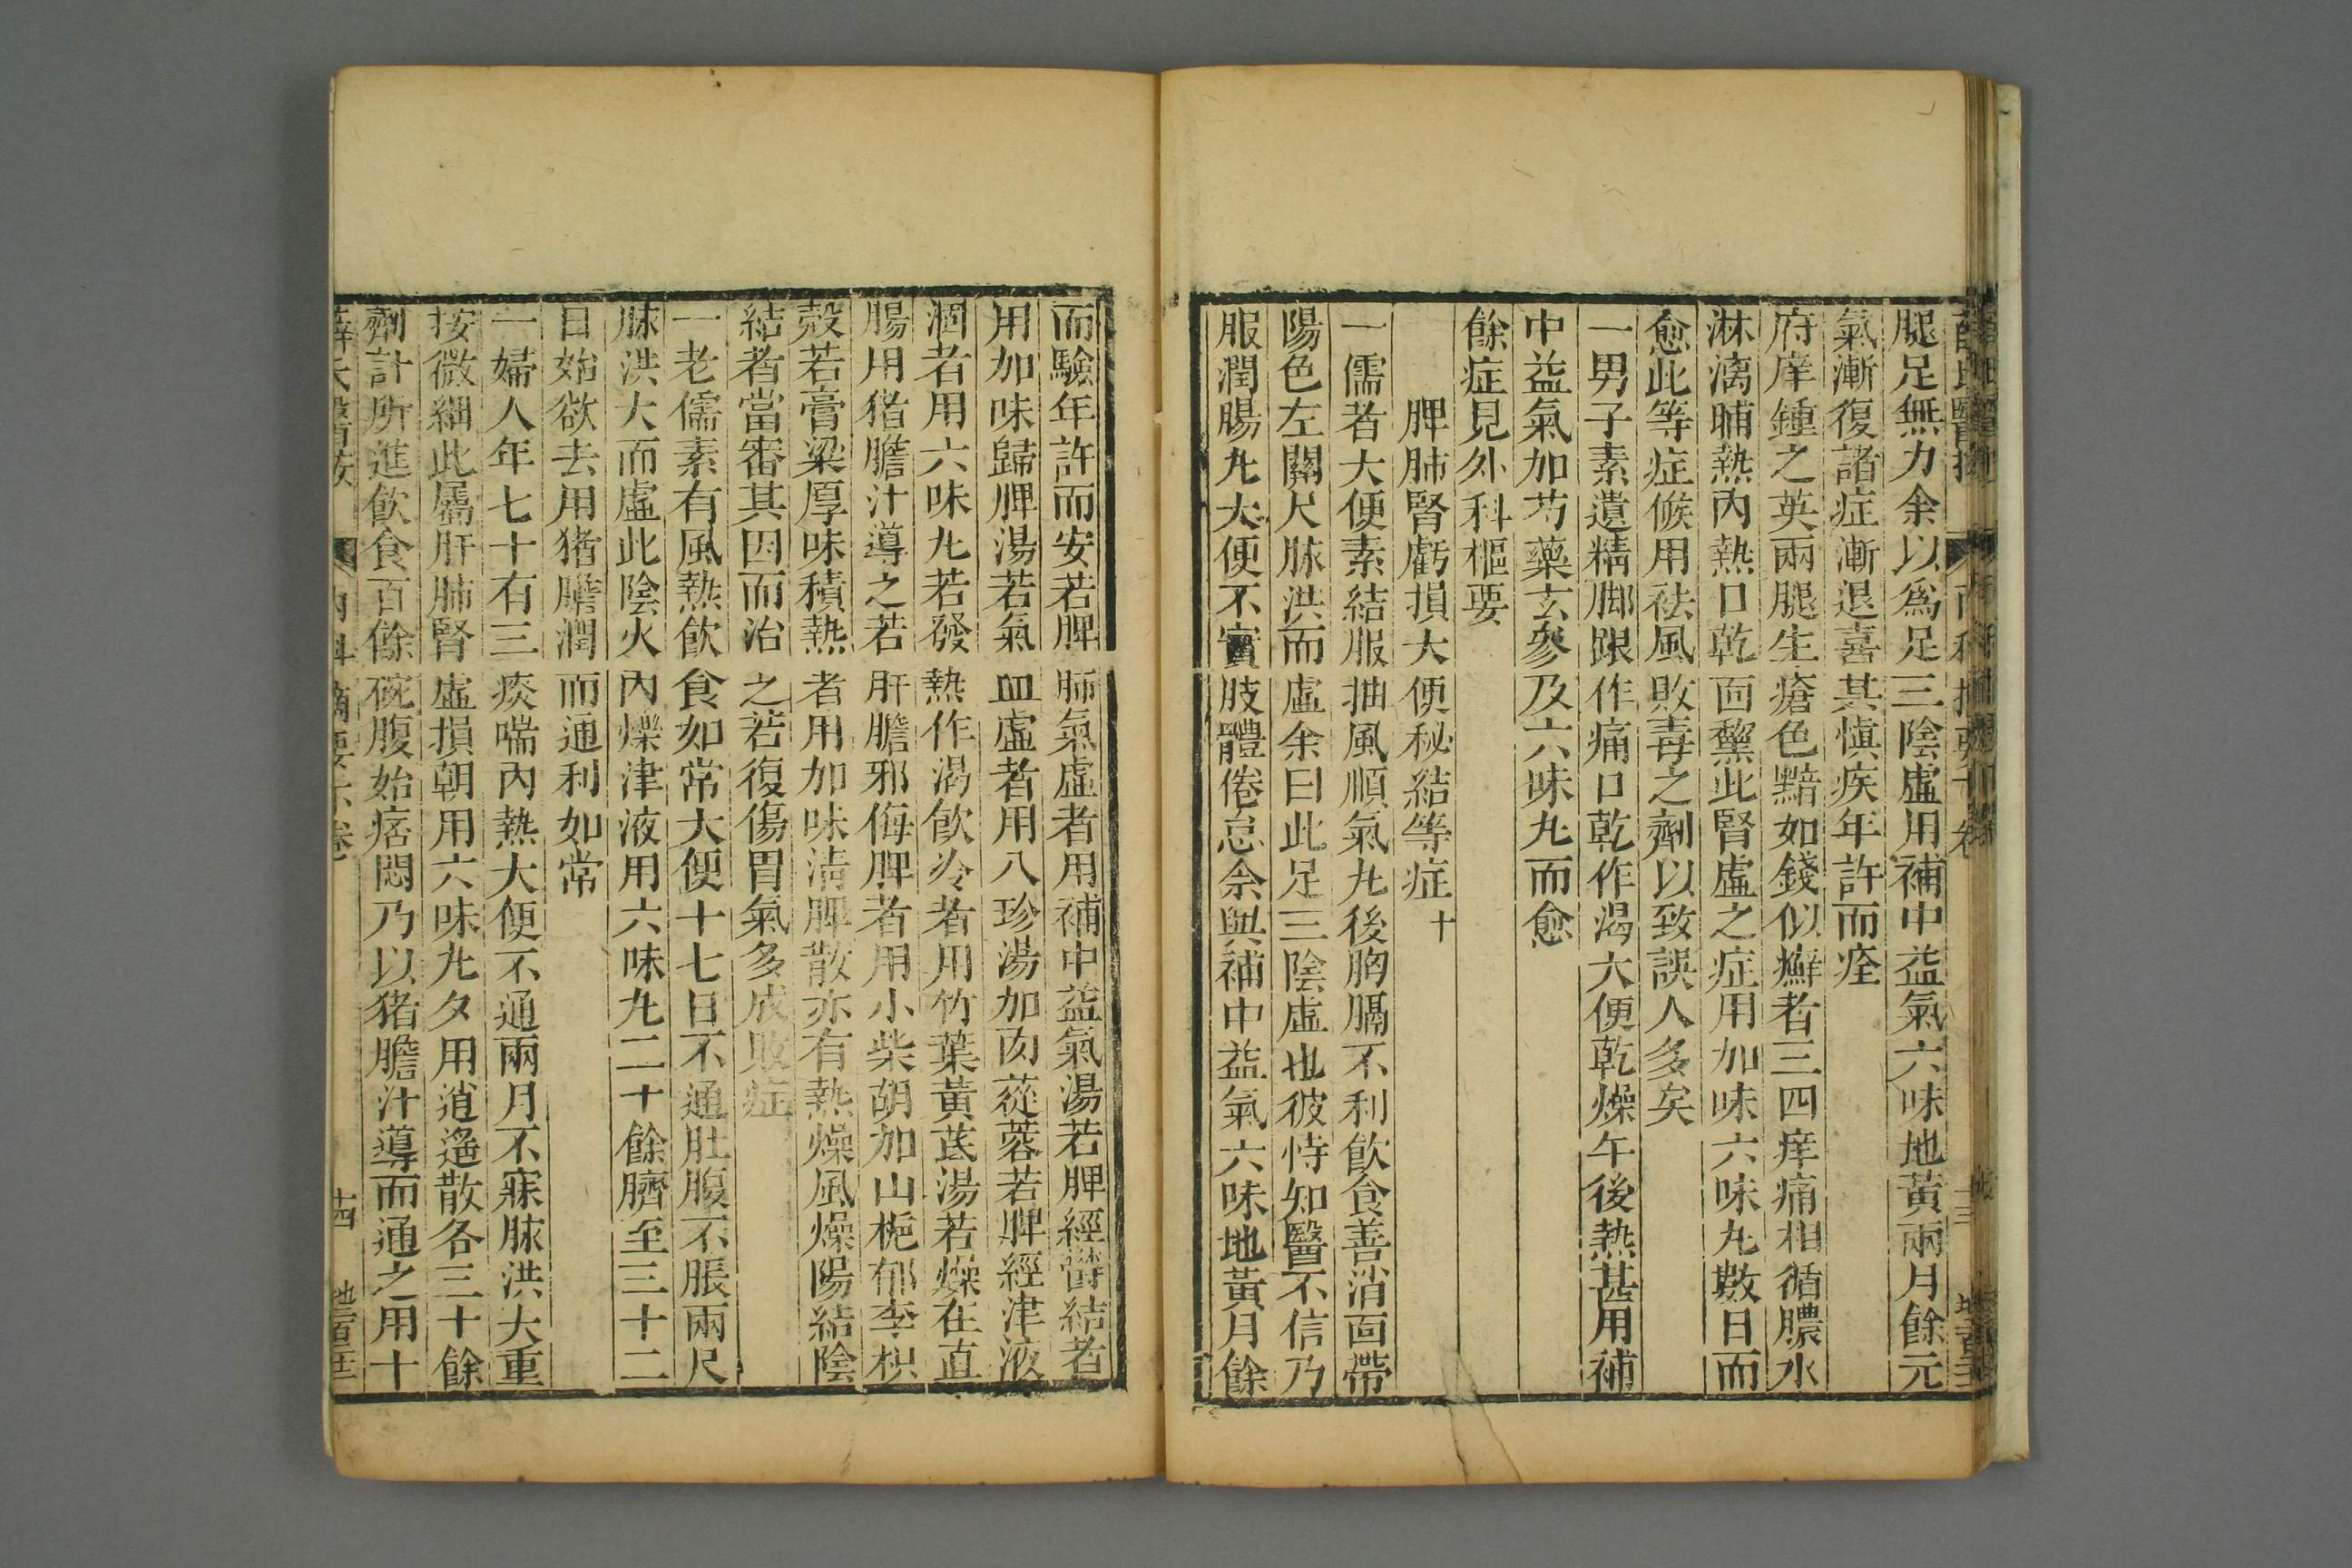 腿足無力余以爲足三陰虛用補中益氣六味地黃兩月餘元
氣漸復諸症漸退喜其愼疾年許而痊
府庠鍾之英兩腿生瘡色黯如錢似癬者三四痒痛相循膿水
淋漓晡熱內熱口乾面黧此腎虛之症用加味六味丸數日而
愈此等症候用祛風敗毒之劑以致誤人多矣
一男子素遺精脚跟作痛口乾作渴大便乾燥午後熱甚用補
中益氣加芍藥玄參及六味丸而愈
餘症見外科樞要
脾肺腎虧損大便秘結等症十
一儒者大便素結服抽風順氣丸後胸膈不利飲食善消面帶
陽色左關尺脉洪而虛余曰此足三陰虛也彼恃知醫不信乃
服潤腸丸大便不實肢體倦怠余與補中益氣六味地黃月餘
而驗年許而安若脾肺氣虛者用補中益氣湯若脾經鬱結者
用加味歸脾湯若氣血虛者用八珍湯加肉蓯蓉若脾經津液
涸者用六味丸若發熱作渴飲冷者用竹葉黃芪湯若燥在直
腸用猪膽汁導之若肝膽邪侮脾者用小柴胡加山梔郁李枳
殼若膏粱厚味積熱者用加味清脾散亦有熱燥風燥陽結陰
結者當審其因而治之若復傷胃氣多成敗症
一老儒素有風熱飲食如常大便十七日不通肚腹不脹兩尺
脉洪大而虛此陰火內爍津液用六味丸二十餘臍至三十二
日始欲去用猪膽潤而通利如常
一婦人年七十有三痰喘內熱大便不通兩月不寐脉洪大重
按微細此屬肝肺腎虛損朝用六味丸夕用逍遙散各三十餘
劑計所進飲食百餘碗腹始痞悶乃以猪膽汁導而通之用十
薛氏醫按 內科摘要上卷 十四